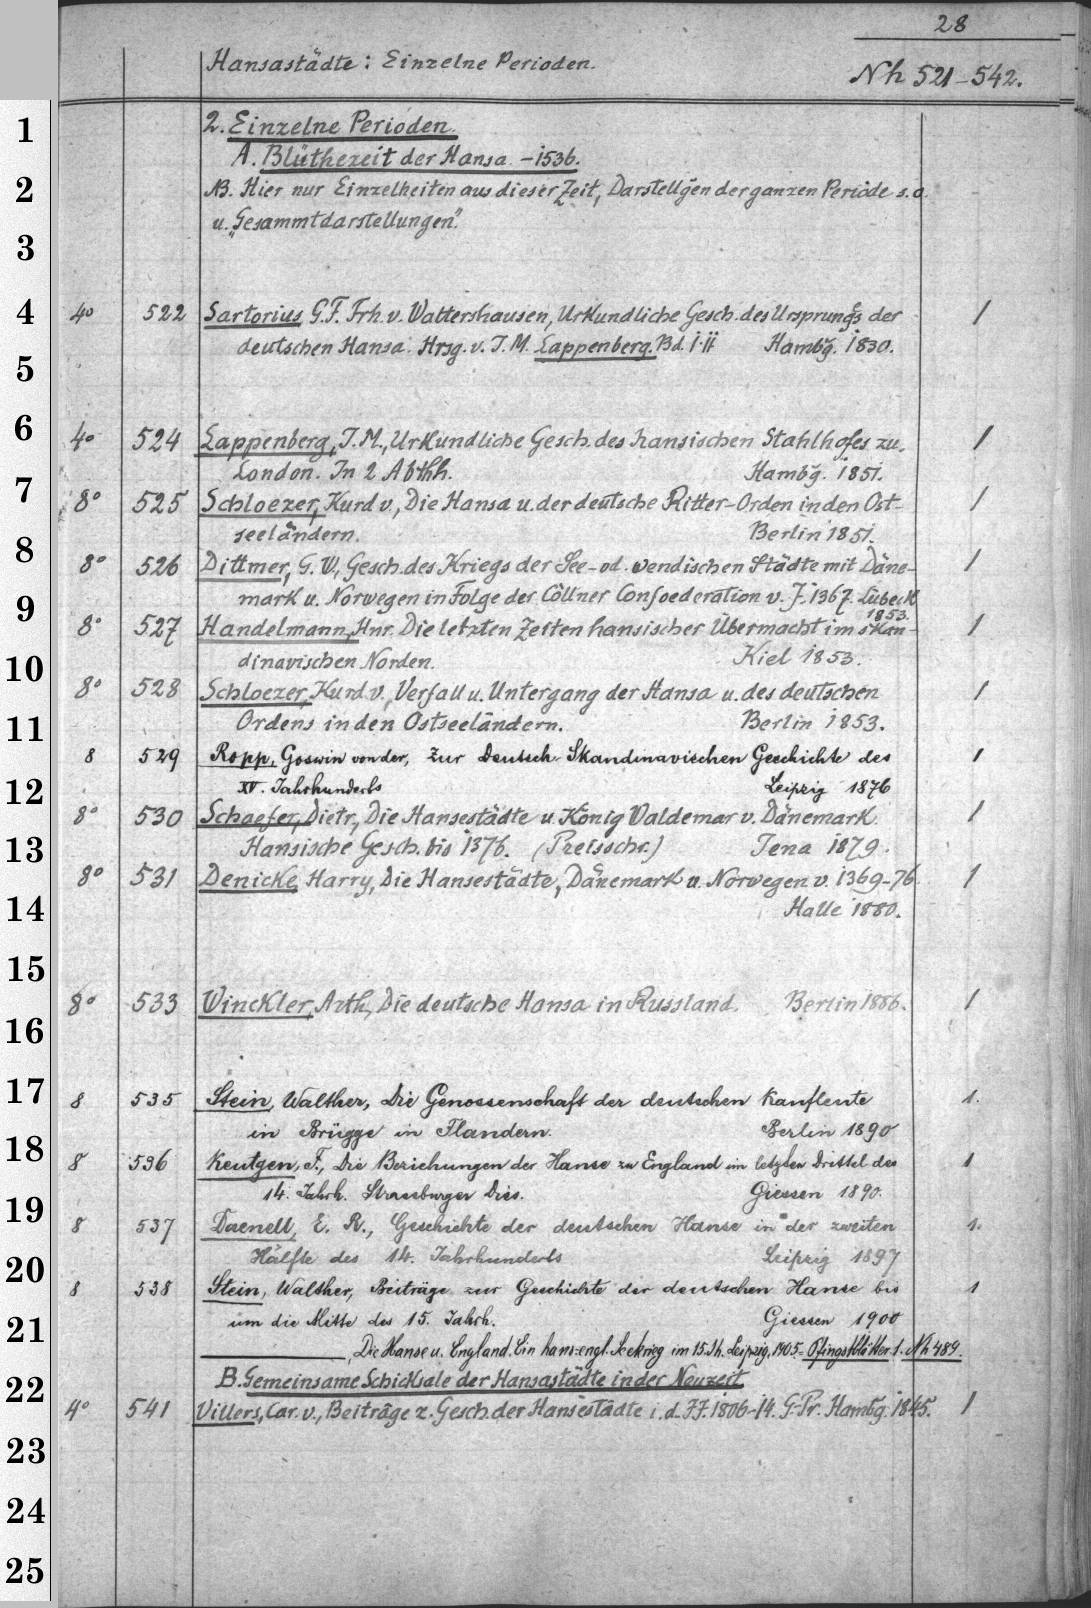 28
Hansastädte: Einzelne Perioden.
Nh 521-542.
2. Einzelne Perioden.
A. Blüthezeit der Hansa -1536.
NB. Hier nur Einzelheiten aus dieser Zeit, Darstellgen der ganzen Periode s. o.
u. „Gesammtdarstellungen".
4° 522 Sartorius, G. F. Frh. v. Waltershausen, Urkundliche Gesch. des Ursprungs der 1
deutschen Hansa. Hrsg. v. J. M. Lappenberg. Bd. I-II Hambg. 1830.
4° 524 Lappenberg, J. M., Urkundliche Gesch. des hansischen Stahlhofes zu 1
London. In 2 Abthh. Hambg. 1851.
8° 525 Schloezer, Kurd v., Die Hansa u. der deutsche Ritter-Orden in den Ost- 1
seeländern. Berlin 1851.
8° 526 Dittmer, G. W., Gesch. des Kriegs der See- od. wendischen Städte mit Däne- 1
mark u. Norwegen in Folge der Cöllner Confoederation v. J. 1367. Lübeck
1853.
8° 527 Handelmann, Hnr. Die letzten Zeiten hansischer Übermacht im skan- 1
dinavischen Norden. Kiel 1853.
8° 528 Schloezer, Kurd v., Verfall u. Untergang der Hansa u. des deutschen 1
Ordens in den Ostseeländern. Berlin 1853.
8 529 Ropp, Goswin von der, Zur Deutsch-Skandinavischen Geschichte des 1
XV. Jahrhunderts Leipzig 1876
8° 530 Schaefer, Dietr., Die Hansestädte u. König Waldemar v. Dänemark. 1
Hansische Gesch. bis 1376. (Preisschr.) Jena 1879.
8° 531 Denicke, Harry, Die Hansestädte, Dänemark u. Norwegen v. 1369-76. 1
Halle 1880.
8° 533 Winckler, Arth., Die deutsche Hansa in Russland. Berlin 1886. 1
8 535 Stein, Walther, Die Genossenschaft der deutschen Kaufleute 1.
in Brügge in Flandern. Berlin 1890
8 536 Keutgen, F., Die Beziehungen der Hanse zu England im letzten Drittel des 1
14. Jahrh. Strassburger Diss. Giessen 1890.
8 537 Daenell, E. R., Geschichte der deutschen Hanse in der zweiten 1.
Hälfte des 14. Jahrhunderts Leipzig 1897
8 538 Stein, Walther, Beiträge zur Geschichte der deutschen Hanse bis 1
um die Mitte des 15. Jahrh. Giessen 1900
, Die Hanse u. England. Ein hans.-engl. Seekrieg im 15. Jh. Leipzig, 1905 = Pfingstblätter 1. Nh 489.
B. Gemeinsame Schicksale der Hansastädte in der Neuzeit
4° 541 Villers, Car. v., Beiträge z. Gesch. der Hansestädte i. d. JJ. 1806-14. G-Pr. Hambg. 1845. 1
1
2
3
4
5
6
7
8
9
10
11
12
13
14
15
16
17
18
19
20
21
22
23
24
25